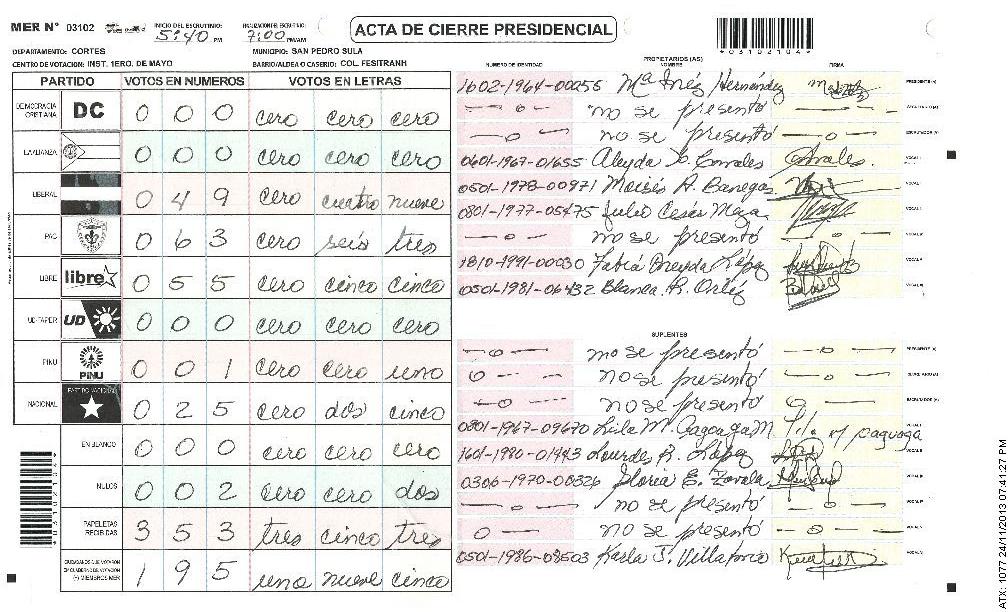 MER N° 03102
INICIO DEL ESCRUTINIO: 5:40 PM
7:00 PM/AM
ACTA DE CIERRE PRESIDENCIAL
03102104
DEPARTAMENTO: CORTES
MUNICIPIO: SAN PEDRO SULA
CENTRO DE VOTACION: INST. 1ERO. DE MAYO
BARRIO/ALDEA O CASERIO: COL. FESITRANH
PARTIDO VOTOS EN NUMEROS VOTOS EN LETRAS
DEMOCRACIA CRISTIANA DC 0 0 0 cero cero cero
LA ALIANZA 0 0 0 cero cero cero
LIBERAL 0 4 9 cero cuatro nueve
PAC 0 6 3 cero seis tres
LIBRE libre 0 5 5 cero cinco cinco
UD-FAPER UD 0 0 0 cero cero cero
PINU PINU 0 0 1 cero cero uno
NACIONAL PARTIDO NACIONAL 0 2 5 cero dos cinco
EN BLANCO 0 0 0 cero cero cero
NULOS 0 0 2 cero cero dos
PAPELETAS RECIBIDAS 3 5 3 tres cinco tres
CIUDADANOS QUE VOTARON EN CUADERNO DE VOTACION (+) MIEMBROS MER 1 9 5 uno nueve cinco
PROPIETARIOS (AS)
NUMERO DE IDENTIDAD NOMBRE FIRMA
1602-1964-00055 Mª Inés Hernández PRESIDENTE (A)
— o — no se presentó — o — SECRETARIO (A)
— o — no se presentó — o — ESCRUTADOR (A)
0601-1967-01655 Aleyda S. Corrales Corrales. VOCAL I
0501-1978-00971 Moisés A. Banegas
0801-1977-05475 Julio Cesár Meza
— o — no se presentó — o —
1810-1991-00030 Fabiá Oneyda López
0501-1981-06432 Blanca. R. Ortíz
SUPLENTES
— o — no se presentó — o — PRESIDENTE (A)
o — no se presentó — o — SECRETARIO (A)
— o — no se presentó o — ESCRUTADOR (A)
0801-1967-09670 Leila M. Gagoaga M.
1601-1980-01943 Lourdes R. López
0306-1970-00326 Gloria E. Zavala
— o — no se presentó — o —
o — no se presentó — o —
0501-1986-08503 Karla J. Villafranca
ATX: 1077 24/11/2013 07:41:27 PM